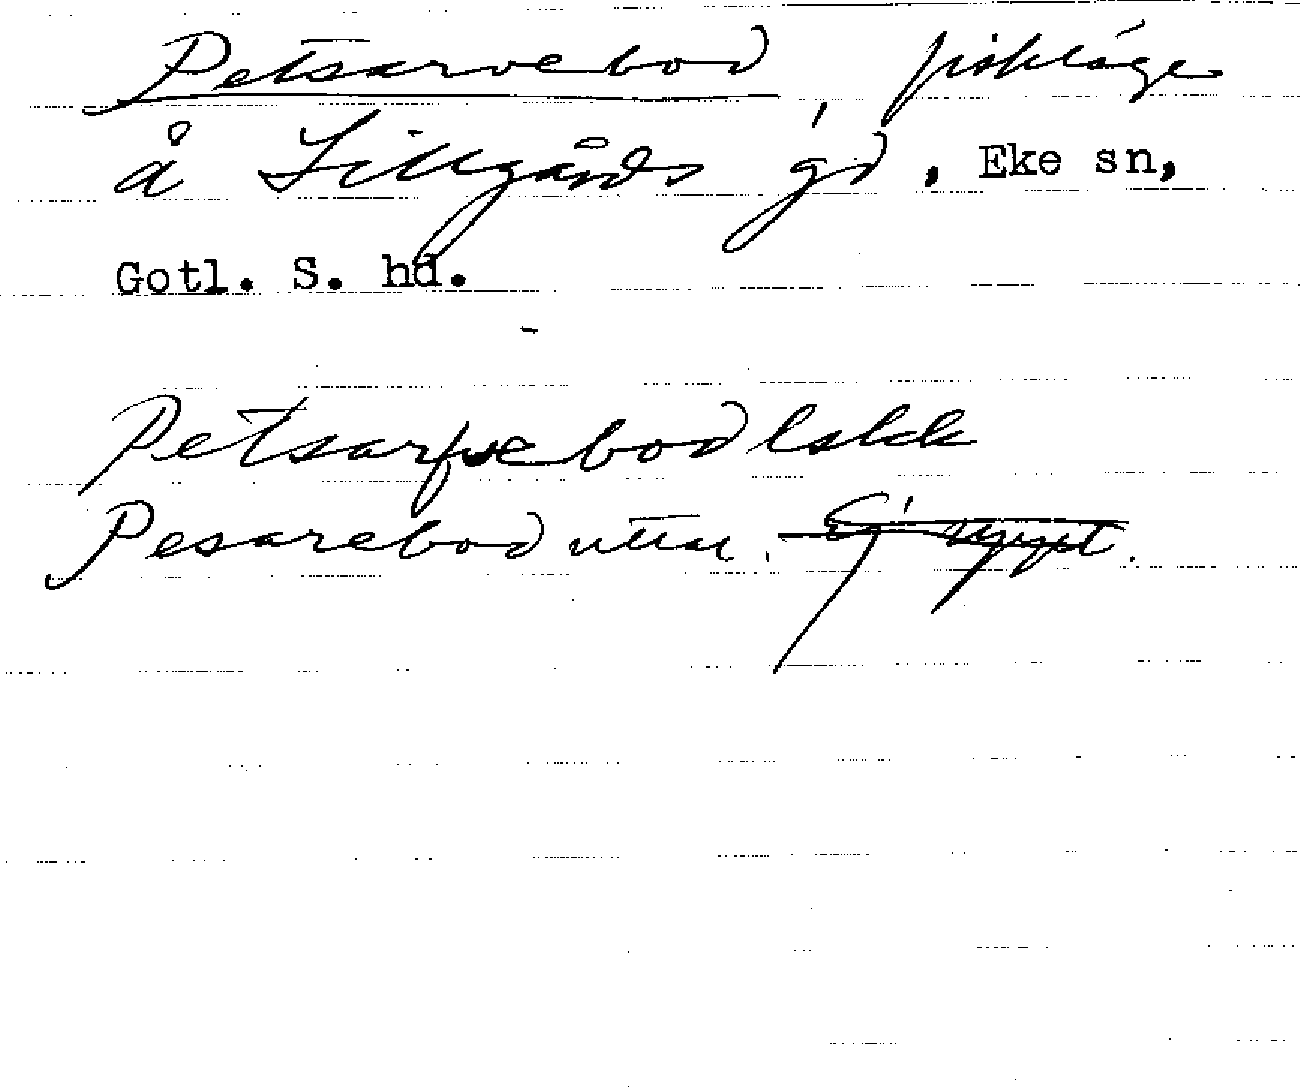 Petsarvebod, fiskläge
å Lillgårds gd, Eke sn,
Gotl. S. hd.
Petsarfvebod
Pesarebod uttal. Ej